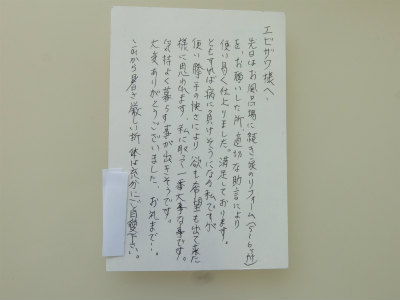 エビサワ様へ、
先日はお風呂場に続き床のリフォーム(5〜6ヶ所)
をお願いした所、適切な助言により
使い易く仕上りました。満足しております。
ともすれば病に負けそうになる私ですが
使い勝手の快さにより欲も希望も出て来た
様に思われます。私に取って一番大事な事です。
気持よく暮らす事が出きそうです。
大変ありがとうございました。お礼まで…。
これから暑さ厳しい折、体は充分にご自愛下さい。